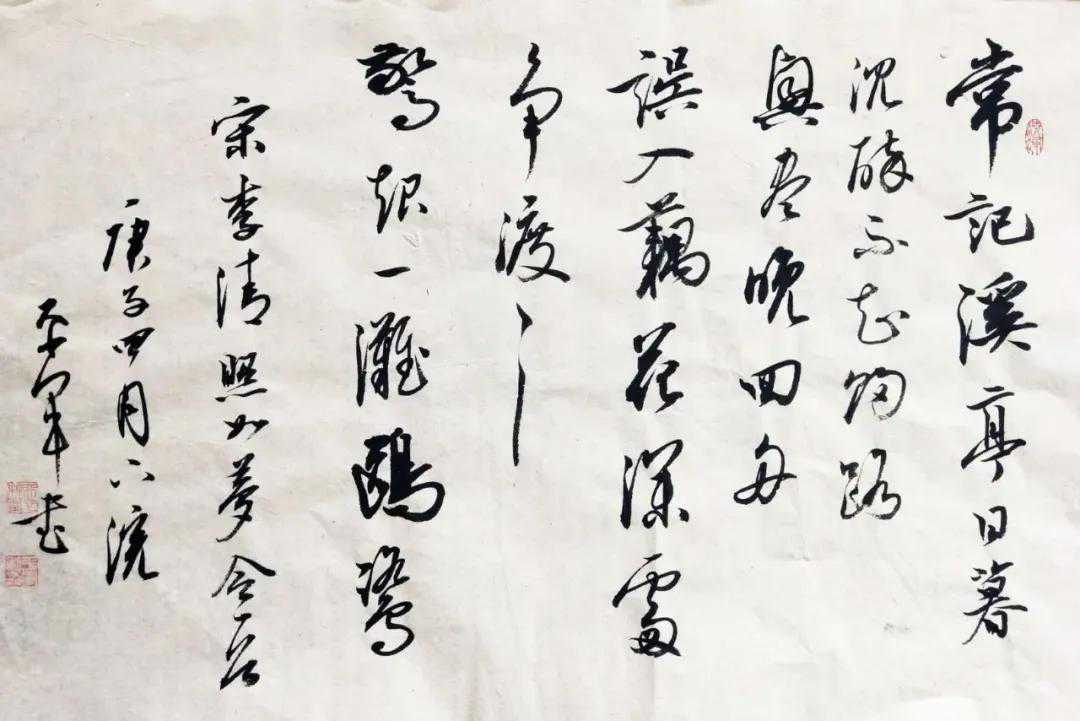 常記溪亭日暮
沈醉不知歸路
興盡晚回舟
誤入藕花深處
争渡〻
驚起一灘鷗鷺
宋李清照如夢令一首
庚子四月下浣
軍書